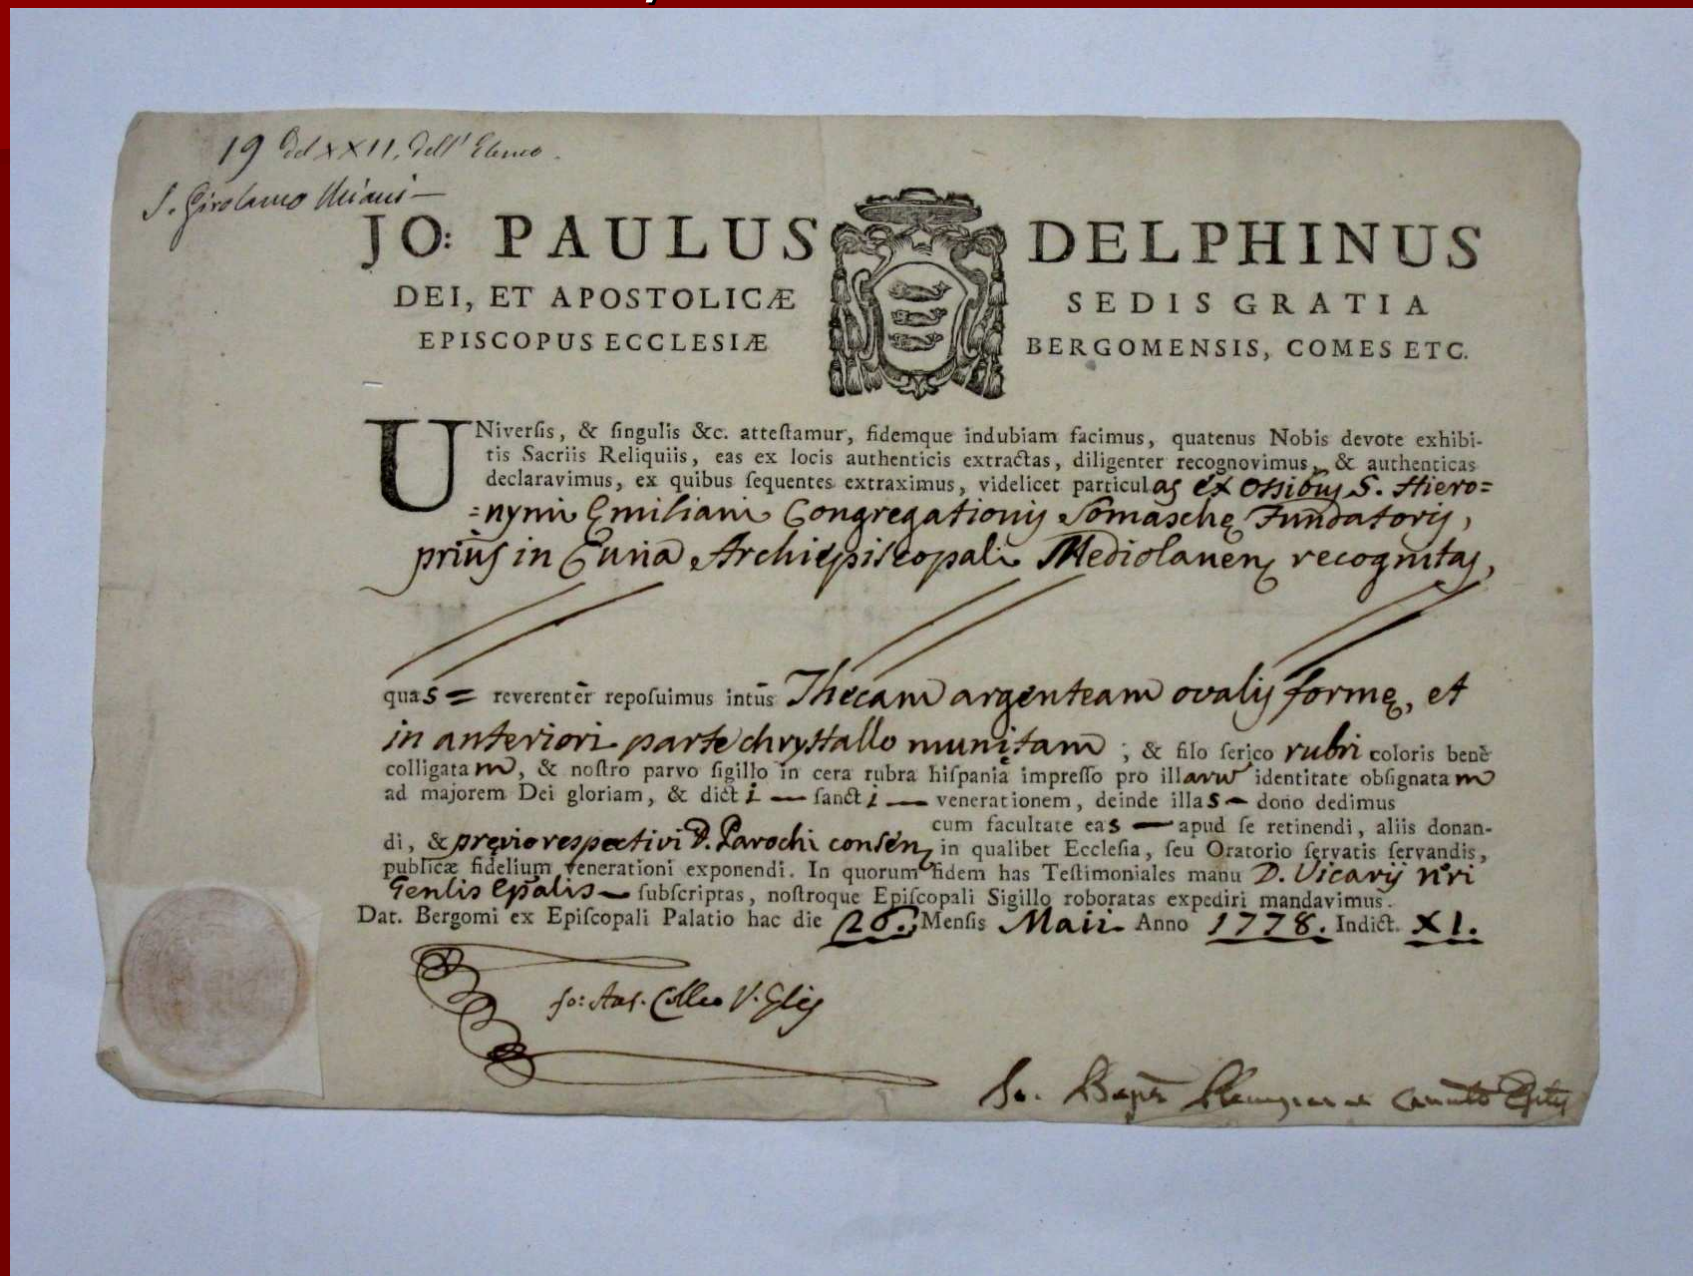 19 del XXII. dell' Elenco.
S. Girolamo Miani —
JO: PAULUS DELPHINUS
DEI, ET APOSTOLICÆ SEDIS GRATIA
EPISCOPUS ECCLESIÆ BERGOMENSIS, COMES ETC.
UNiverſis, & ſingulis &c. atteſtamur, fidemque indubiam facimus, quatenus Nobis devote exhibi-
tis Sacriis Reliquiis, eas ex locis authenticis extractas, diligenter recognovimus, & authenticas
declaravimus, ex quibus ſequentes extraximus, videlicet particulas ex Ossibus S. Hiero=
=nymi Emiliani Congregationis Somaschę Fundatoris,
prius in Curia Archiepiscopali Mediolanen recognitas,
quas = reverentèr repoſuimus intùs Thecam argenteam ovalis formę, et
in anteriori parte chrystallo munitam ; & filo ſerico rubri coloris benè
colligatam, & noſtro parvo ſigillo in cera rubra hiſpanię impreſſo pro illarum identitate obſignatam
ad majorem Dei gloriam, & dicti — ſancti — venerationem, deinde illas — dono dedimus
cum facultate eas — apud ſe retinendi, aliis donan-
di, & pręvio respectivi D. Parochi consen in qualibet Eccleſia, ſeu Oratorio ſervatis ſervandis,
publicæ fidelium venerationi exponendi. In quorum fidem has Teſtimoniales manu D. Vicarij nri
Genlis Epalis — ſubſcriptas, noſtroque Epiſcopali Sigillo roboratas expediri mandavimus.
Dat. Bergomi ex Epiſcopali Palatio hac die 26. Menſis Maii Anno 1778. Indict. XI.
Jo: Ant. V. Glis
Jo. Bapta